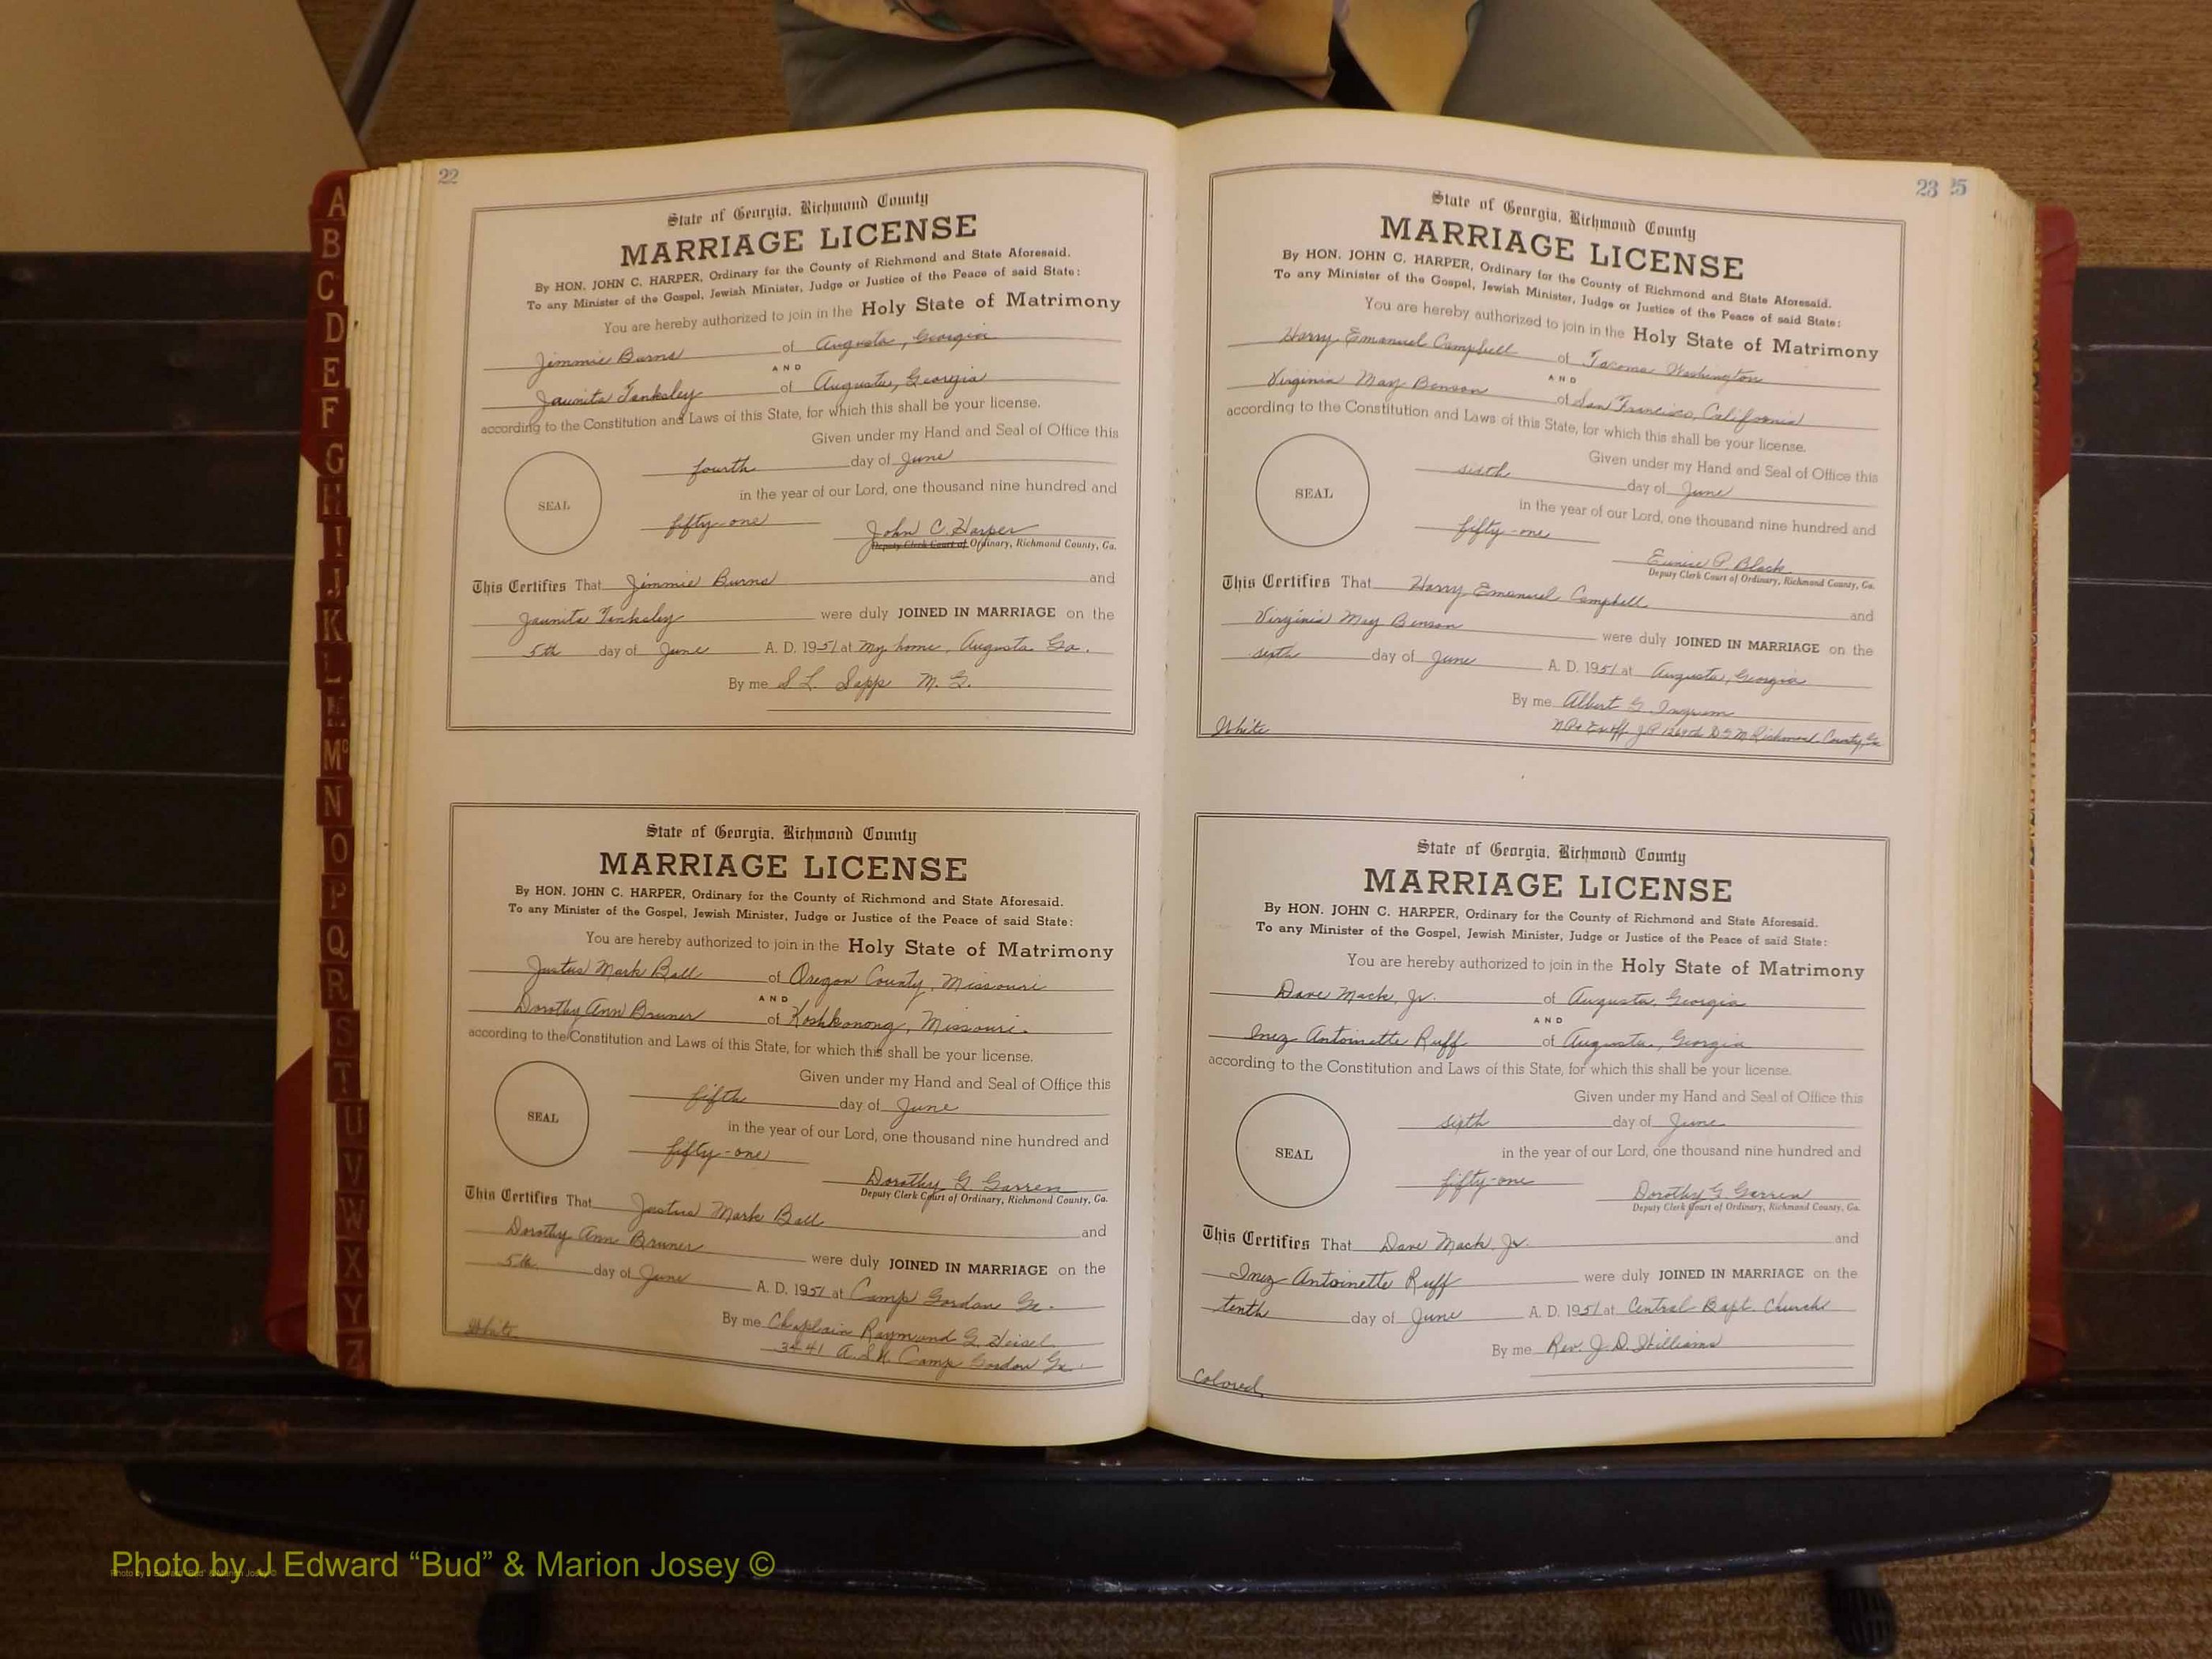 A
B
C
D
E
F
G
H
I
J
K
L
M
Mc
N
O
P
Q
R
S
T
U
V
W
X
Y
Z
22
State of Georgia, Richmond County
MARRIAGE LICENSE
By HON. JOHN C. HARPER, Ordinary for the County of Richmond and State Aforesaid.
To any Minister of the Gospel, Jewish Minister, Judge or Justice of the Peace of said State:
You are hereby authorized to join in the Holy State of Matrimony
Jimmie Burns of Augusta, Georgia
AND
Jaunita Tanksley of Augusta, Georgia
according to the Constitution and Laws of this State, for which this shall be your license.
Given under my Hand and Seal of Office this
fourth day of June
in the year of our Lord, one thousand nine hundred and
SEAL
fifty-one John C. Harper
Deputy Clerk Court of Ordinary, Richmond County, Ga.
This Certifies That Jimmie Burns and
Jaunita Tanksley were duly JOINED IN MARRIAGE on the
5th day of June A. D. 1951 at My home, Augusta Ga.
By me S L Sapp M. G.
State of Georgia, Richmond County
MARRIAGE LICENSE
By HON. JOHN C. HARPER, Ordinary for the County of Richmond and State Aforesaid.
To any Minister of the Gospel, Jewish Minister, Judge or Justice of the Peace of said State:
You are hereby authorized to join in the Holy State of Matrimony
Justus Mark Ball of Oregon County, Missouri
AND
Dorothy Ann Bruner of Koshkonong, Missouri.
according to the Constitution and Laws of this State, for which this shall be your license.
Given under my Hand and Seal of Office this
fifth day of June
SEAL
in the year of our Lord, one thousand nine hundred and
fifty-one Dorothy G. Garren
Deputy Clerk Court of Ordinary, Richmond County, Ga.
This Certifies That Justus Mark Ball and
Dorothy Ann Bruner were duly JOINED IN MARRIAGE on the
5th day of June A. D. 1951 at Camp Gordon Ga.
By me Chaplain Raymund G. Heisel
3441 A.S.U. Camp Gordon Ga.
White
23 25
State of Georgia, Richmond County
MARRIAGE LICENSE
By HON. JOHN C. HARPER, Ordinary for the County of Richmond and State Aforesaid.
To any Minister of the Gospel, Jewish Minister, Judge or Justice of the Peace of said State:
You are hereby authorized to join in the Holy State of Matrimony
Harry Emanuel Campbell of Tacoma Washington
AND
Virginia May Benson of San Francisco, California
according to the Constitution and Laws of this State, for which this shall be your license.
Given under my Hand and Seal of Office this
sixth day of June
SEAL
in the year of our Lord, one thousand nine hundred and
fifty-one Eunice P. Black
Deputy Clerk Court of Ordinary, Richmond County, Ga.
This Certifies That Harry Emanuel Campbell and
Virginia May Benson were duly JOINED IN MARRIAGE on the
sixth day of June A. D. 1951 at Augusta, Georgia
By me Albert G. Ingram
White N.P. & Ex off. J.P. 1269th D G M Richmond County, Ga
State of Georgia, Richmond County
MARRIAGE LICENSE
By HON. JOHN C. HARPER, Ordinary for the County of Richmond and State Aforesaid.
To any Minister of the Gospel, Jewish Minister, Judge or Justice of the Peace of said State:
You are hereby authorized to join in the Holy State of Matrimony
Dave Mack, Jr. of Augusta, Georgia
AND
Inez Antoinette Ruff of Augusta, Georgia
according to the Constitution and Laws of this State, for which this shall be your license.
Given under my Hand and Seal of Office this
sixth day of June
SEAL
in the year of our Lord, one thousand nine hundred and
fifty-one Dorothy G. Garren
Deputy Clerk Court of Ordinary, Richmond County, Ga.
This Certifies That Dave Mack, Jr. and
Inez Antoinette Ruff were duly JOINED IN MARRIAGE on the
tenth day of June A. D. 1951 at Central Bapt. Church
By me Rev. J. D. Williams
Colored
Photo by J Edward “Bud” & Marion Josey ©
Photo by J Edward “Bud” & Marion Josey ©